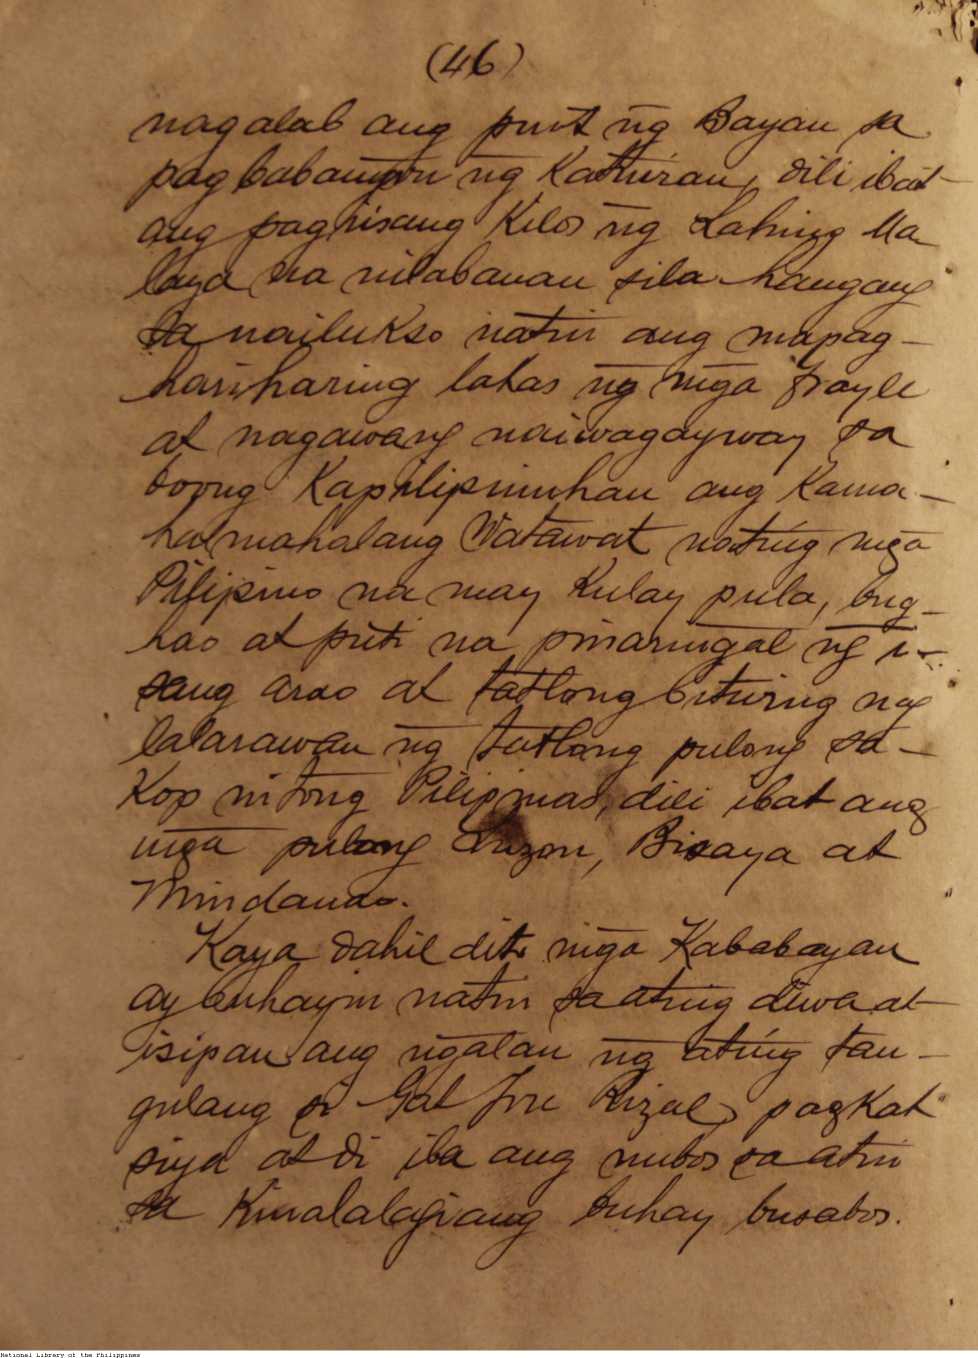 (46)
nagalab ang puso ng̃ Bayan sa
pagbabangon ng̃ Katuiran, dili ibat
ang pagiisang Kilos ng̃ Lahing Ma
laya na nilabanan sila hangang
sa nailukso natin ang mapag-
hariharing lakas ng̃ mg̃a frayle
at nagawang naiwagayway sa
boong Kapilipinuhan ang Kama-
halmahalang Watawat nating mg̃a
Pilipino na may Kulay pula, bug-
hao at puti na pinaringal ng̃ i-
sang arao at tatlong bituing nag
lalarawan ng̃ tatlong pulong sa-
Kop nitong Pilipinas, dili ibat ang
mg̃a pulong Luzon, Bisaya at
Mindanao.
Kaya dahil dito mg̃a Kababayan
ay buhayin natin sa ating diwa at
isipan ang ng̃alan ng̃ ating tan-
gulang si Gat Jose Rizal, pagkat
siya at di iba ang tumubos sa atin
sa Kinalalagiang buhay busabos.
National Library of the Philippines